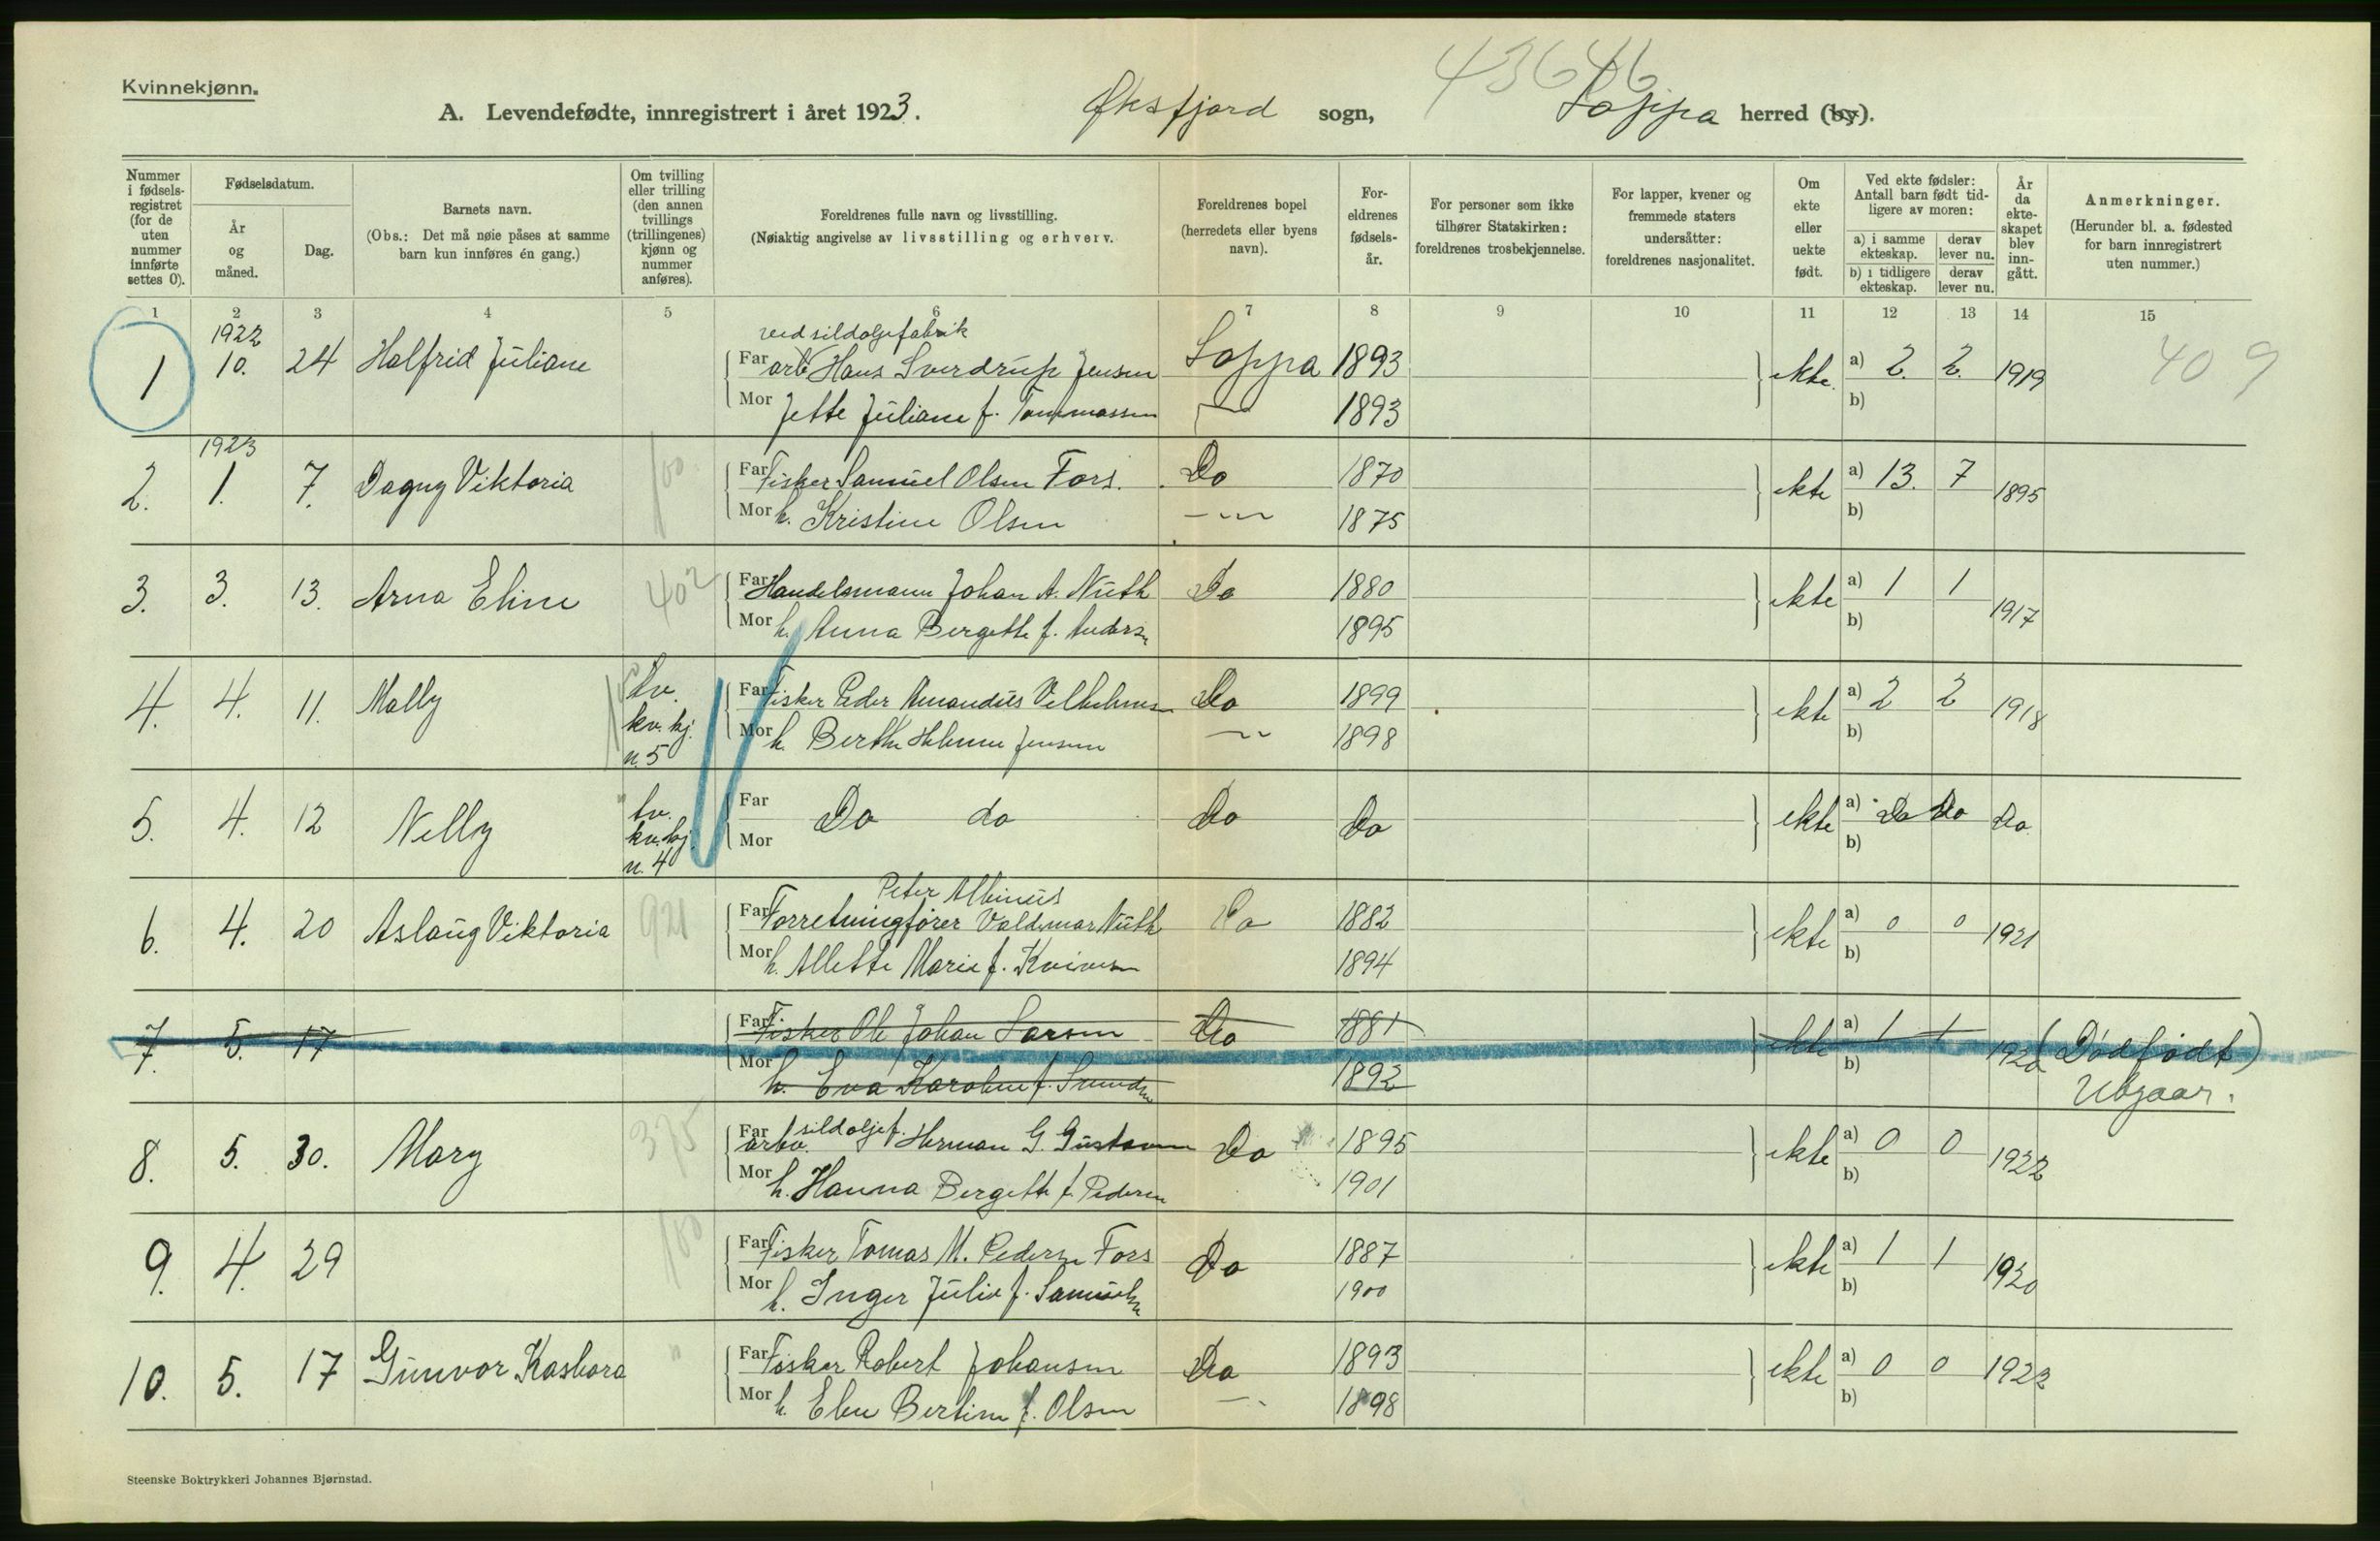 Kvinnekjønn.
A. Levendefødte, innregistrert i året 1923. Øksfjord sogn, Loppa herred (by).
43646
Nummer i fødselsregistret (for de uten nummer innførte settes 0).
Fødselsdatum.
År og måned.
Dag.
Barnets navn.
(Obs.: Det må nøie påses at samme barn kun innføres én gang.)
Om tvilling eller trilling (den annen tvillings (trillingenes) kjønn og nummer anføres).
Foreldrenes fulle navn og livsstilling.
(Nøiaktig angivelse av livsstilling og erhverv.
Foreldrenes bopel (herredets eller byens navn).
Foreldrenes fødselsår.
For personer som ikke tilhører Statskirken: foreldrenes trosbekjennelse.
For lapper, kvener og fremmede staters undersåtter: foreldrenes nasjonalitet.
Om ekte eller uekte født.
Ved ekte fødsler: Antall barn født tidligere av moren:
a) i samme ekteskap. derav lever nu.
b) i tidligere ekteskap. derav lever nu.
År da ekteskapet blev inngått.
Anmerkninger.
(Herunder bl. a. fødested for barn innregistrert uten nummer.)
1 2 3 4 5 6 7 8 9 10 11 12 13 14 15
1922 ved sildoljefabrik
1 10. 24 Halfrid Juliane Far arb Hans Sverdrup Jensen Loppa 1893 ekte. a) 2. 2. 1919 409
Mor Jette Juliane f. Tommassen 1893 b)
1923
2. 1. 7. Dagny Viktoria 100 Far Fisker Samuel Olsen Fors. Do 1870 ekte a) 13. 7 1895
Mor h. Kristine Olsen 1875 b)
3. 3. 13. Arna Eline 402 Far Handelsmann Johan A. Nuth Do 1880 ekte a) 1 1 1917
Mor h. Anna Bergette f. Andersn 1895 b)
4. 4. 11. Molly tv. kv. kj. n. 5 Far Fisker Peder Amandus Vilhelmsen Do 1899 ekte a) 2 2 1918
Mor h. Berthe Helmine Jensen 1898 b)
5. 4. 12 Nelly tv. kv. kj. n. 4 Far Do do Do Do ekte a) Do Do Do
Mor b)
Peter Albinus
6. 4. 20 Aslaug Viktoria 921 Far Forretningfører Valdemar Nuth Do 1882 ekte a) 0 0 1921
Mor h. Allette Marie f. Kvivesen 1894 b)
7. 5. 17 Far Fisker Ole Johan Larsen Do 1881 ekte a) 1 1 1920 (Dødfødt)
Mor h. Eva Karoline f. 1892 b) Utgaar.
sildoljef.
8. 5. 30. Mary 375 Far arbv. Herman G. Gustavsen Do 1895 ekte a) 0 0 1922
Mor h. Hanna Bergette f. Pedersen 1901 b)
9. 4. 29 100 Far Fisker Tomas M. Pedersn Fors Do 1887 ekte a) 1 1 1920
Mor h. Inger Julie f. Samuelsn 1900 b)
10. 5. 17 Gunvor Kasbora " Far Fisker Robert Johansen Do 1893 ekte a) 0 0 1922
Mor h. Elen Bertine f. Olsen 1898 b)
Steenske Boktrykkeri Johannes Bjørnstad.